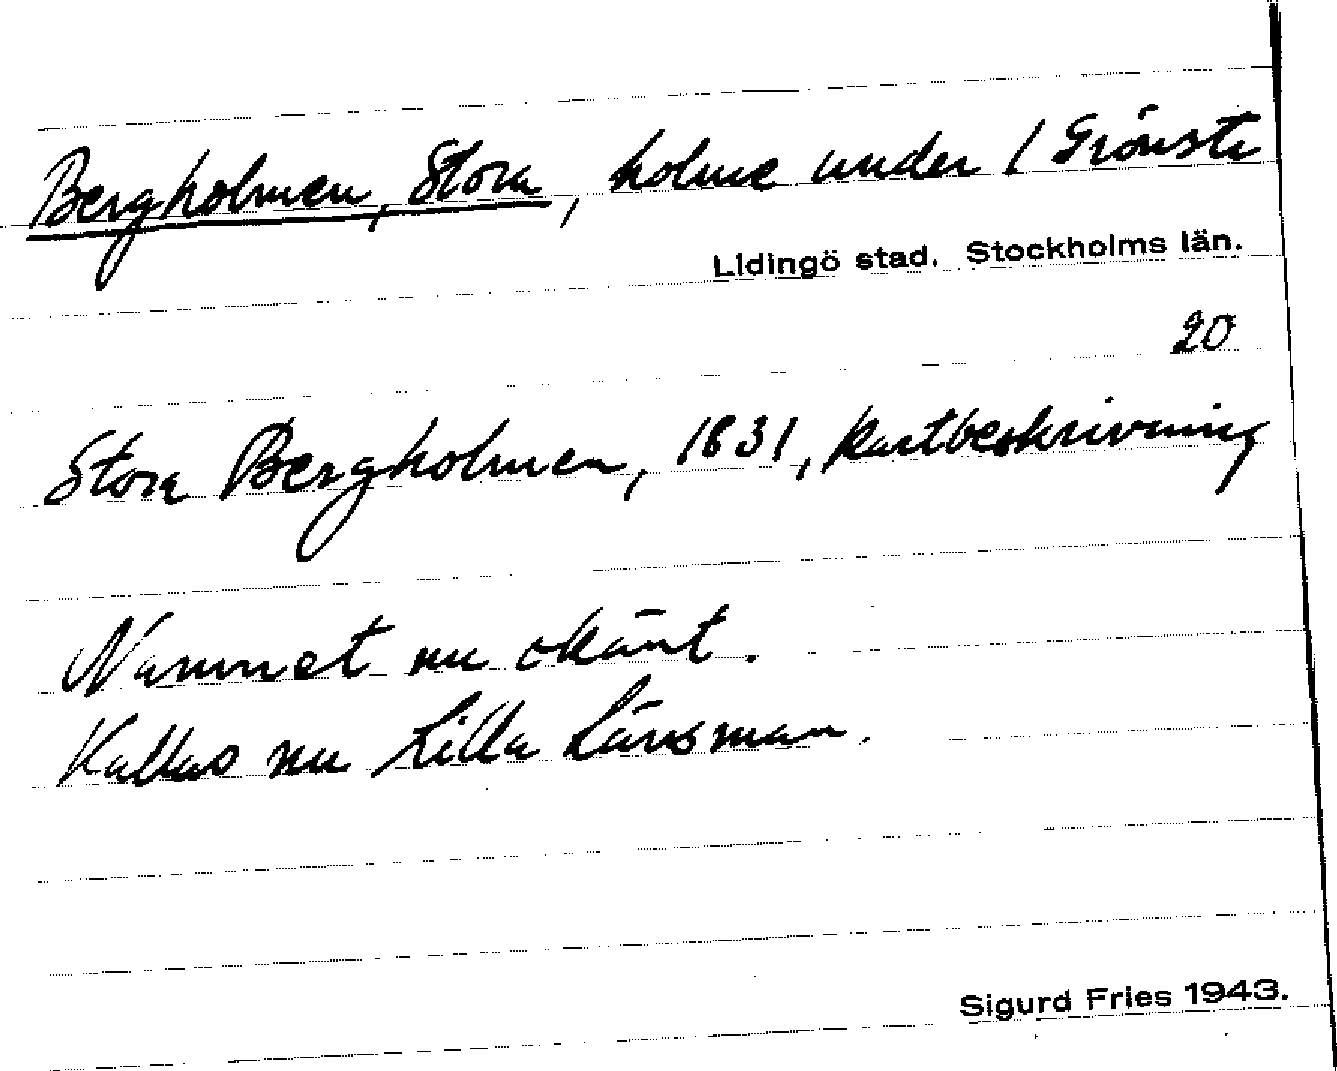 Bergholmen, Stora, holme under 1 Grönsta
Lidingö stad. Stockholms län.
20
Stora Bergholmen, 1831, kartbeskrivning
Namnet nu okänt.
Kallas nu Lilla Länsman.
Sigurd Fries 1943.